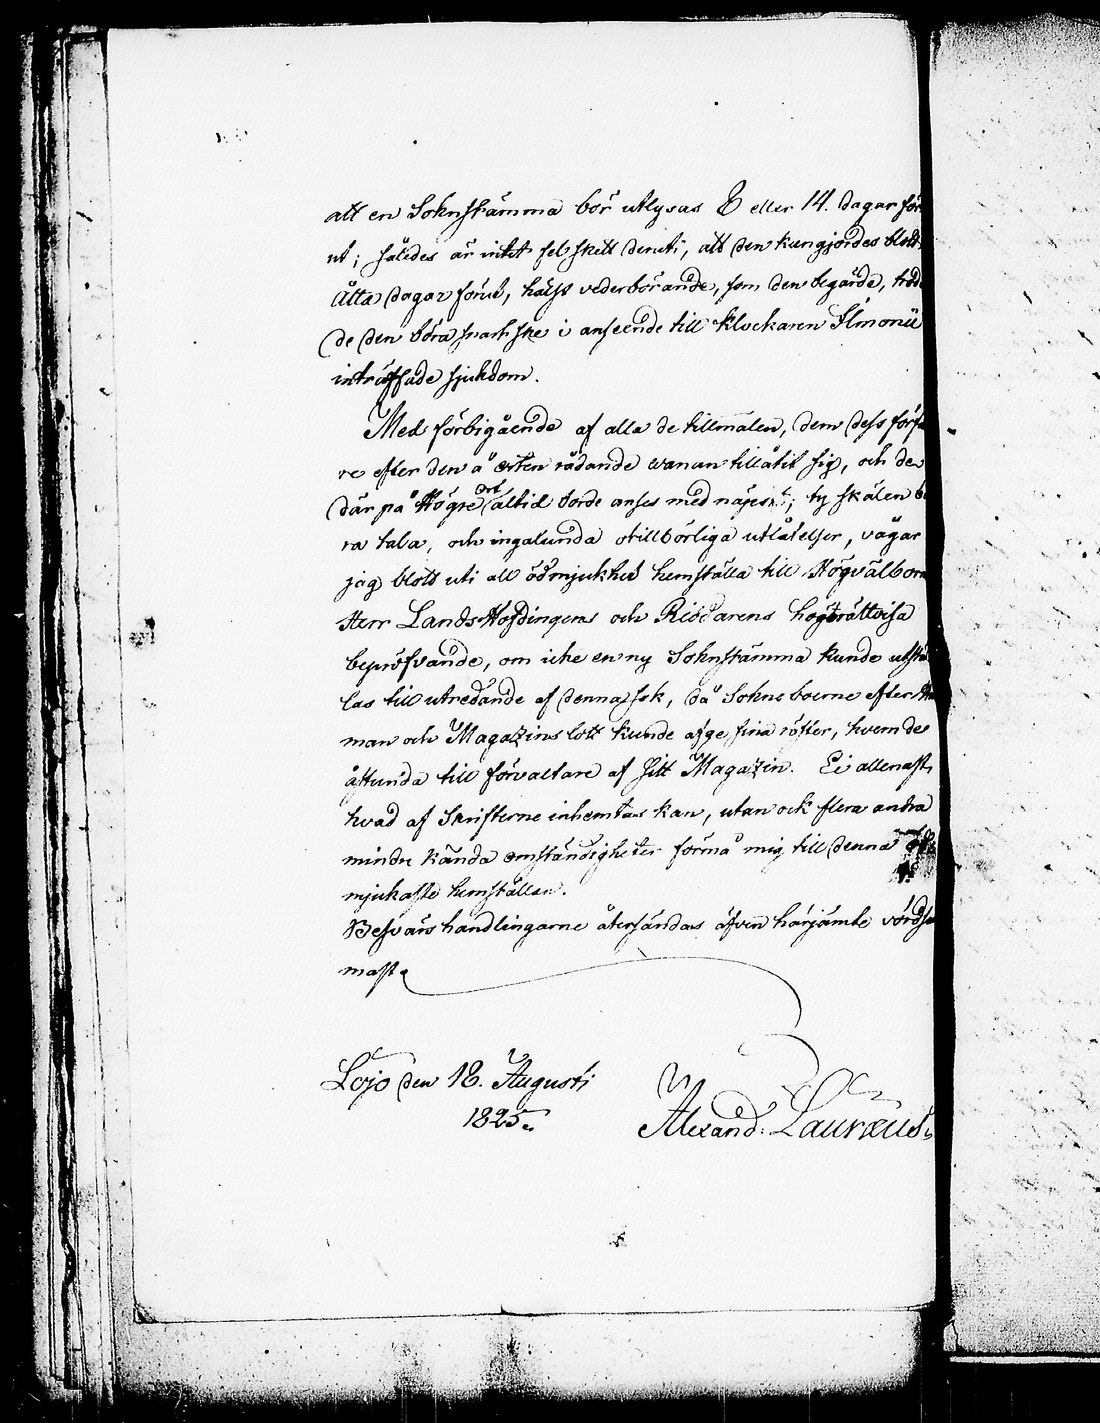 att en Soknstämma bör utlysas 8 eller 14. dagar för
ut; således är intet fel skett deruti, att den kungjordes blott
Åtta dagar förut, hälst vederbörande, som den begärde, trod
de den böra snart ske i anseende till Klockaren Ilmonii
inträffade sjukdom.
Med förbigående af alla de tillmälen, dem dess förfa
re efter den å orten rådande wanan tillåtit sig, och de
där på Högre Ort altid borde anses med näpst; ty skälen bö
ra tala, och ingalunda otillbörliga utlåtelser, vågar
jag blott uti all ödmjukhet hemställa till Högvälborn
Herr LandsHöfdingens och Riddarens högträttvisa
bepröfvande, om icke en ny Soknstämma kunde utstä
las till utredande af denna sak, då Sokneboerne efter
man och Magazins lott kunde afge sina röster, hvem de
åstunda till förvaltare af sitt Magazin. Ei allenast,
hvad af Skrifterne inhemtas kan, utan ock flera andra
mindre kända omständigheter förmå mig till denna
mjukaste hemställan.
Besvärshandlingarne återsändas äfven härjämte vördsa
mast.
Lojo den 18. Augusti
1825.
Alexand: Lauræus.